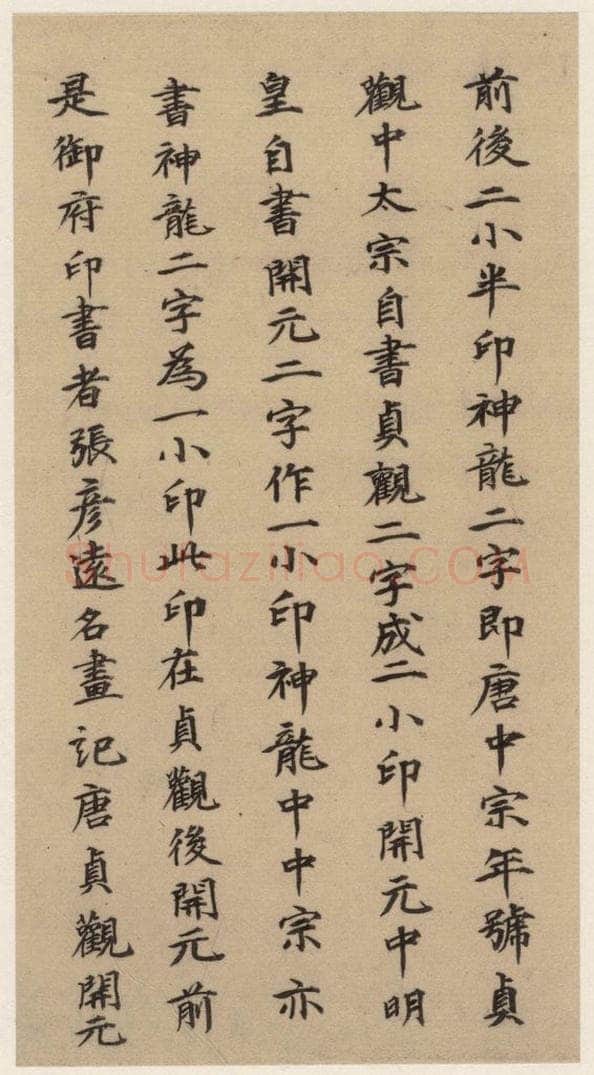 前後二小半印神龍二字即唐中宗年號貞
觀中太宗自書貞觀二字成二小印開元中明
皇自書開元二字作一小印神龍中中宗亦
書神龍二字為一小印此印在貞觀後開元前
是御府印書者張彥遠名畫記唐貞觀開元
shufaziliao.COM